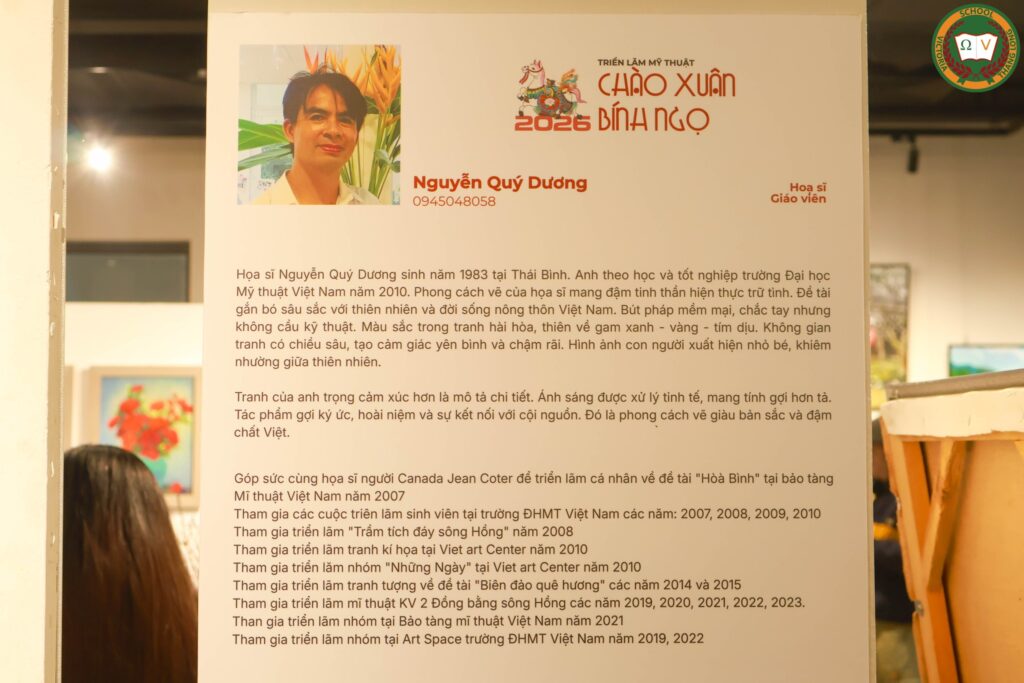 SCHOOL
VICTORIA
THANG LONG
Ω V
TRIỂN LÃM MỸ THUẬT
CHÀO XUÂN
BÍNH NGỌ
2026
Nguyễn Quý Dương
0945048058
Hoạ sĩ
Giáo viên
Họa sĩ Nguyễn Quý Dương sinh năm 1983 tại Thái Bình. Anh theo học và tốt nghiệp trường Đại học
Mỹ thuật Việt Nam năm 2010. Phong cách vẽ của họa sĩ mang đậm tinh thần hiện thực trữ tình. Đề tài
gắn bó sâu sắc với thiên nhiên và đời sống nông thôn Việt Nam. Bút pháp mềm mại, chắc tay nhưng
không cầu kỹ thuật. Màu sắc trong tranh hài hòa, thiên về gam xanh - vàng - tím dịu. Không gian
tranh có chiều sâu, tạo cảm giác yên bình và chậm rãi. Hình ảnh con người xuất hiện nhỏ bé, khiêm
nhường giữa thiên nhiên.
Tranh của anh trọng cảm xúc hơn là mô tả chi tiết. Ánh sáng được xử lý tinh tế, mang tính gợi hơn tả.
Tác phẩm gợi ký ức, hoài niệm và sự kết nối với cội nguồn. Đó là phong cách vẽ giàu bản sắc và đậm
chất Việt.
Góp sức cùng họa sĩ người Canada Jean Coter để triển lãm cá nhân về đề tài "Hòà Bình" tại bảo tàng
Mĩ thuật Việt Nam năm 2007
Tham gia các cuộc triên lãm sinh viên tại trường ĐHMT Việt Nam các năm: 2007, 2008, 2009, 2010
Tham gia triển lãm "Trầm tích đáy sông Hồng" năm 2008
Tham gia triển lãm tranh kí họa tại Viet art Center năm 2010
Tham gia triển lãm nhóm "Những Ngày" tại Viet art Center năm 2010
Tham gia triển lãm tranh tượng về đề tài "Biên đảo quê hương" các năm 2014 và 2015
Tham gia triển lãm mĩ thuật KV 2 Đồng bằng sông Hồng các năm 2019, 2020, 2021, 2022, 2023.
Than gia triển lãm nhóm tại Bảo tàng mĩ thuật Việt Nam năm 2021
Tham gia triển lãm nhóm tại Art Space trường ĐHMT Việt Nam năm 2019, 2022